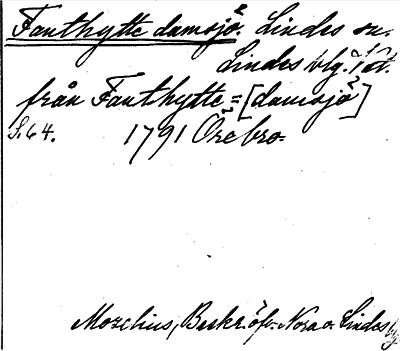 Fanthytte damsjö. Lindes sn.
Lindes blg. 
från Fanthytte=[damsjö]
S. 64. 1791 Örebro.
Moselius, Beskr. öfv. Nora o. Lindes bg.